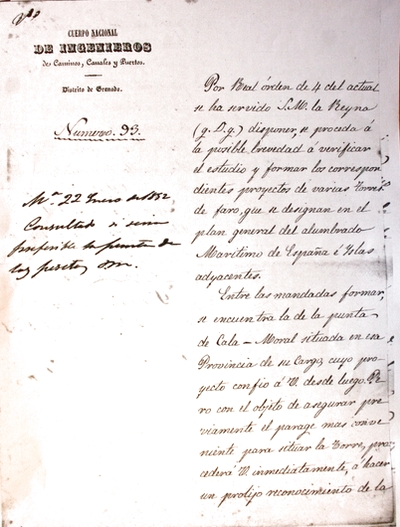 Vº
CUERPO NACIONAL
DE INGENIEROS
de Caminos, Canales y Puertos.
Distrito de Granada.
Numero. 93.
Mª 22 Enero de 1852
Consultado si seria
preferible la punta de
las
Por Real órden de 4 del actual
se ha servido S.M. la Reyna
(q. D. g.) disponer, se proceda á
la posible brevedad á verificar
el estudio y formar los correspon
dientes proyectos de varias Torres
de faro, que se designan en el
plan general del alumbrado
Maritimo de España é Yslas
adyacentes.
Entre las mandadas formar,
se encuentra la de la punta
de Cala-Moral situada en esa
Provincia de su Cargo, cuyo pro-
yecto confio á V. desde luego. Pe
ro con el objeto de asegurar pre
viamente el parage mas conve
niente para situar la Torre, pro
cederá V. inmediatamente, á hacer
un prolijo reconocimiento de la